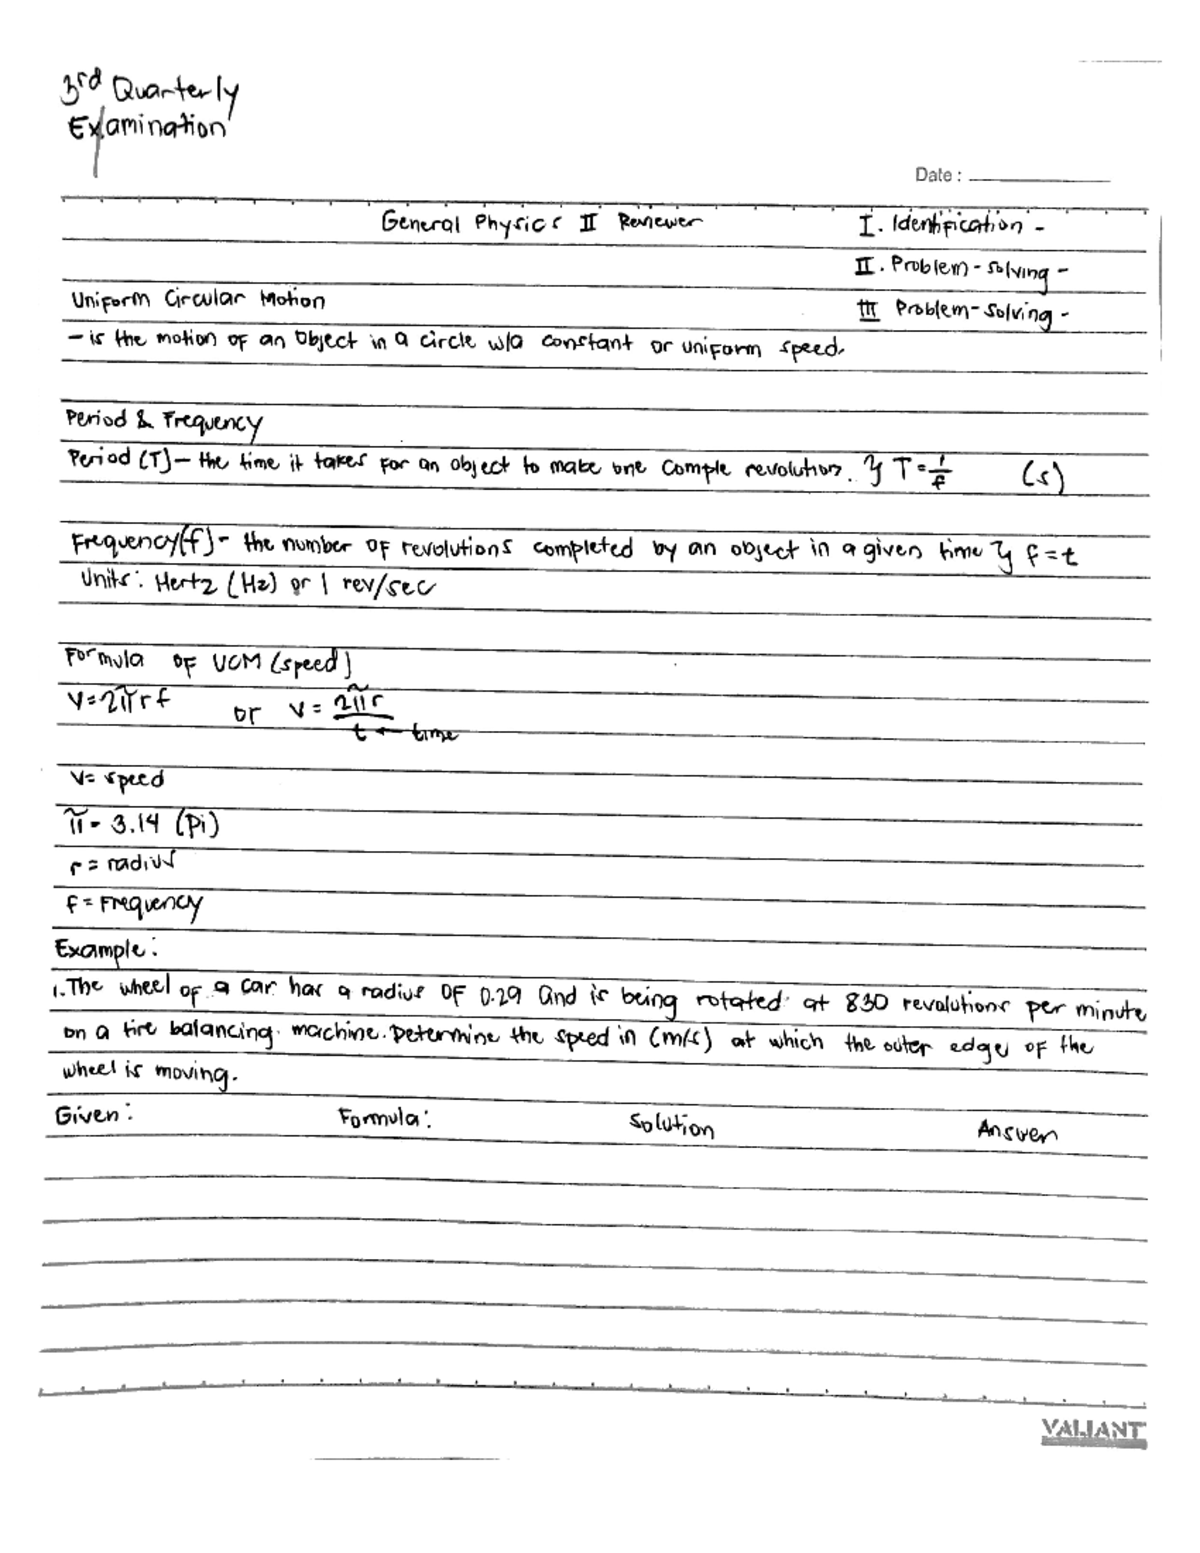 3rd Quarterly
Examination
Date :
General Physics II Reviewer
I. Identification -
II. Problem-solving -
Uniform Circular Motion
III Problem-solving -
- is the motion of an object in a circle w/a constant or uniform speed.
Period & Frequency
Period (T) - the time it takes for an object to make one comple revolution. T = 1/f (s)
Frequency(f) - the number of revolutions completed by an object in a given time f = t
Units: Hertz (Hz) or 1 rev/sec
Formula of UCM (speed)
v = 2πrf or v = 2πr/t ← time
v = speed
π - 3.14 (Pi)
r = radius
f = Frequency
Example:
1. The wheel of a car has a radius of 0.29 and is being rotated at 830 revolutions per minute
on a tire balancing machine. Determine the speed in (m/s) at which the outer edge of the
wheel is moving.
Given: Formula: Solution Answer
VALIANT